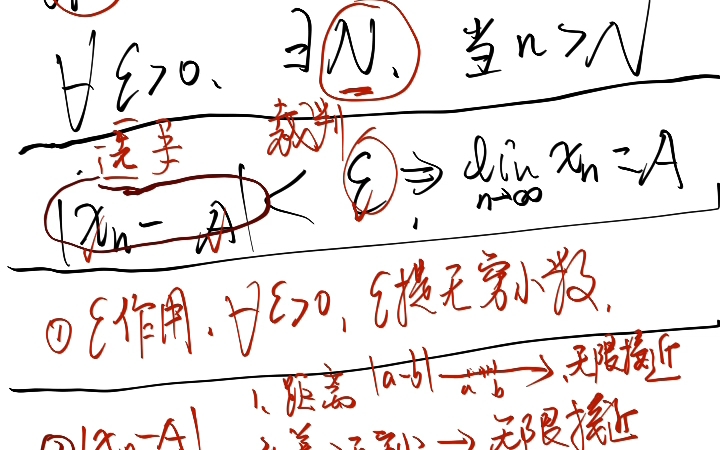 ∀ ε>0, ∃ N, 当 n>N
选手 裁判
|xₙ - A| < ε ⇒ lim xₙ = A
n→∞
① ε作用, ∀ε>0, ε提无穷小数,
1、距离 |a-b| → 无限接近
a b
② |xₙ-A| → 无限接近